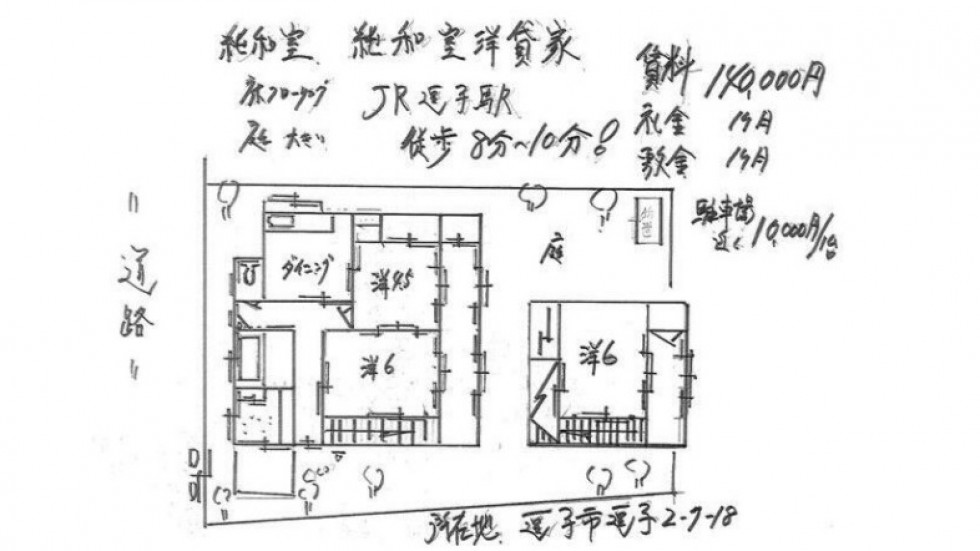 純和室 純和室洋貸家
床フローリング JR逗子駅
庭 大きい 徒歩8分~10分!
賃料 140,000円
礼金 1ケ月
敷金 1ケ月
駐車場
近く 10,000円/1台
〃道路〃
ダイニング
洋4.5
洋6
庭
物置
洋6
所在地 逗子市逗子2-7-18